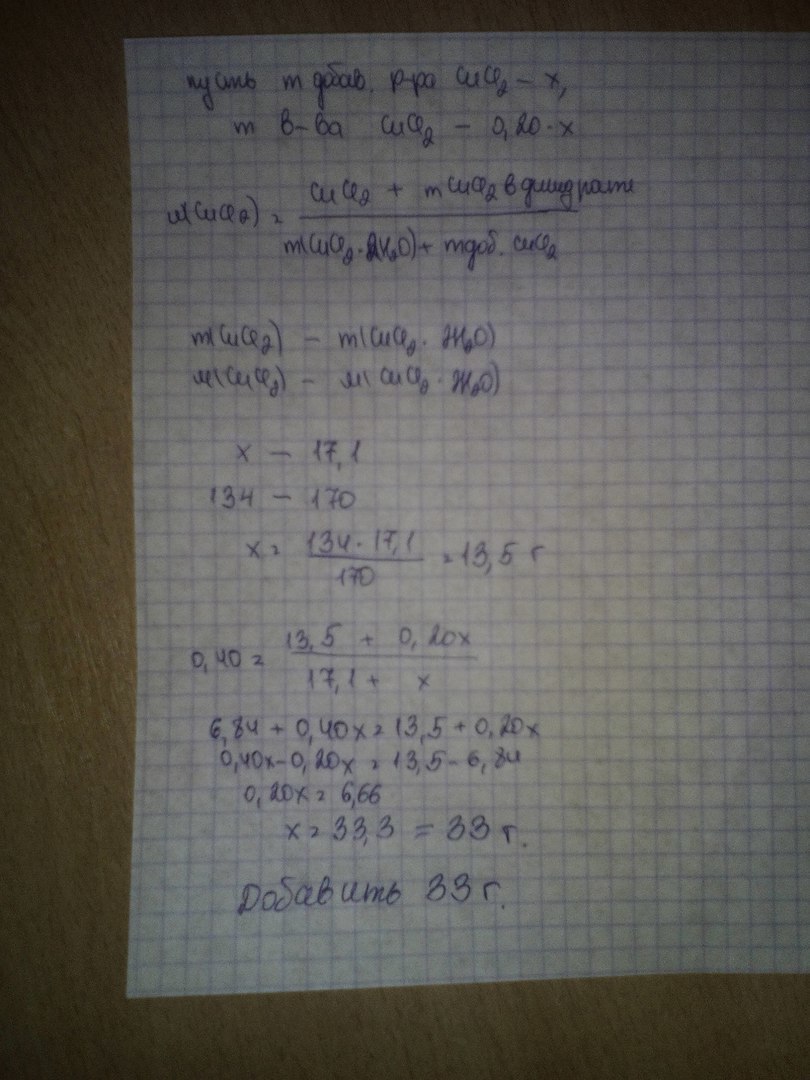 пусть m добав. р-ра CuCl₂ – x,
m в-ва CuCl₂ – 0,20·x
w(CuCl₂) = (CuCl₂ + m CuCl₂ в дигидрате) / (m(CuCl₂·2H₂O) + m доб. CuCl₂)
m(CuCl₂) – m(CuCl₂·2H₂O)
M(CuCl₂) – M(CuCl₂·2H₂O)
x – 17,1
134 – 170
x = (134·17,1) / 170 = 13,5 г
0,40 = (13,5 + 0,20x) / (17,1 + x)
6,84 + 0,40x = 13,5 + 0,20x
0,40x – 0,20x = 13,5 – 6,84
0,20x = 6,66
x = 33,3 = 33 г.
Добавить 33 г.